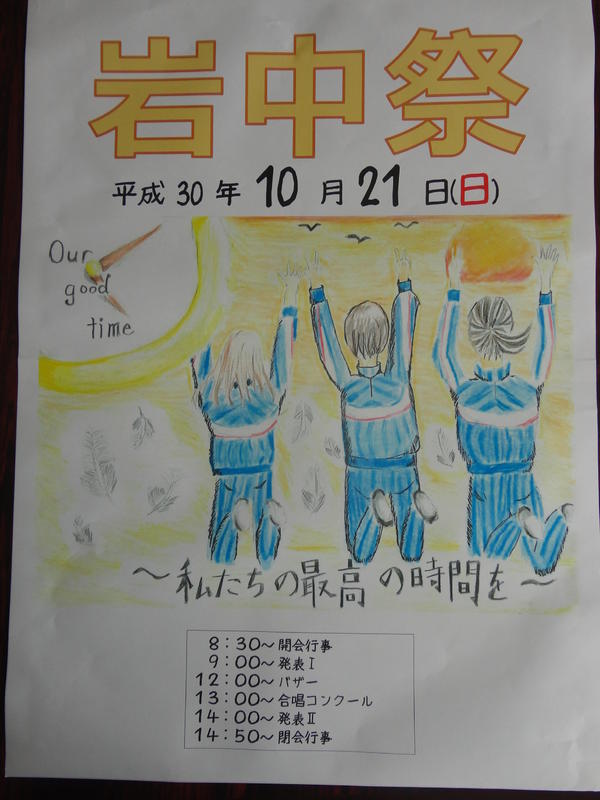 岩中祭
平成30年10月21日(日)
Our
good
time
～私たちの最高の時間を～
8：30～開会行事
9：00～発表Ⅰ
12：00～バザー
13：00～合唱コンクール
14：00～発表Ⅱ
14：50～閉会行事